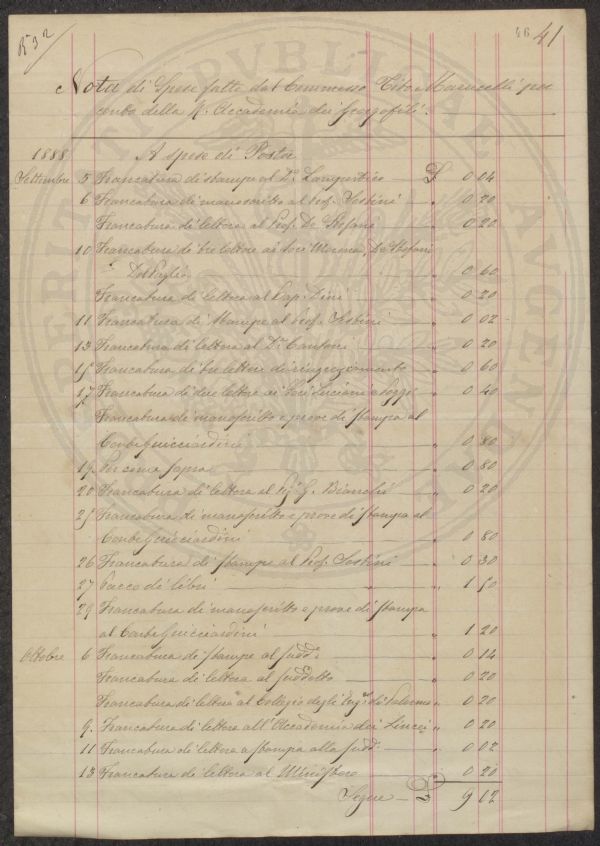 R 32
46 41
Nota di Spese fatte dal Commesso Tito Marucelli per
conto della R. Accademia dei Georgofili.
1888. A spese di Posta
Settembre 5 Francatura di stampe al Dr. Lampertico £ 0 04
6 Francatura di manoscritto al Prof. Sestini " 0 20
Francatura di lettera al Prof. De Stefani " 0 20
10 Francatura di tre lettere ai Soci Morena, De Stefani
e Del Puglia " 0 60
Francatura di lettera al Dini " 0 20
11 Francatura di stampe al Prof. Sestini " 0 02
13 Francatura di lettera al Dr. Cantoni " 0 20
15 Francatura di tre lettere di ringraziamento " 0 60
17 Francatura di due lettere ai Soci Luciani e Poggi " 0 40
Francatura di manoscritto e prove di stampa al
Conte Guicciardini " 0 80
19 Per come sopra " 0 80
20 Francatura di lettera al Bianchi " 0 20
25 Francatura di manoscritto e prove di stampa al
Conte Guicciardini " 0 80
26 Francatura di stampe al Prof. Sestini " 0 30
27 Pacco di libri " 1 50
29 Francatura di manoscritto e prove di stampa
al Conte Guicciardini " 1 20
Ottobre 6 Francatura di stampe al sudd.o " 0 14
Francatura di lettera al suddetto " 0 20
Francatura di lettera al Collegio degli Ing.ri di Palermo " 0 20
9. Francatura di lettera all'Accademia dei Lincei " 0 20
11 Francatura di lettera a stampa alla sudd. " 0 02
13 Francatura di lettera al Ministero " 0 20
Segue £ 9 12
PERITATI PVBLICAE AVGENDAE